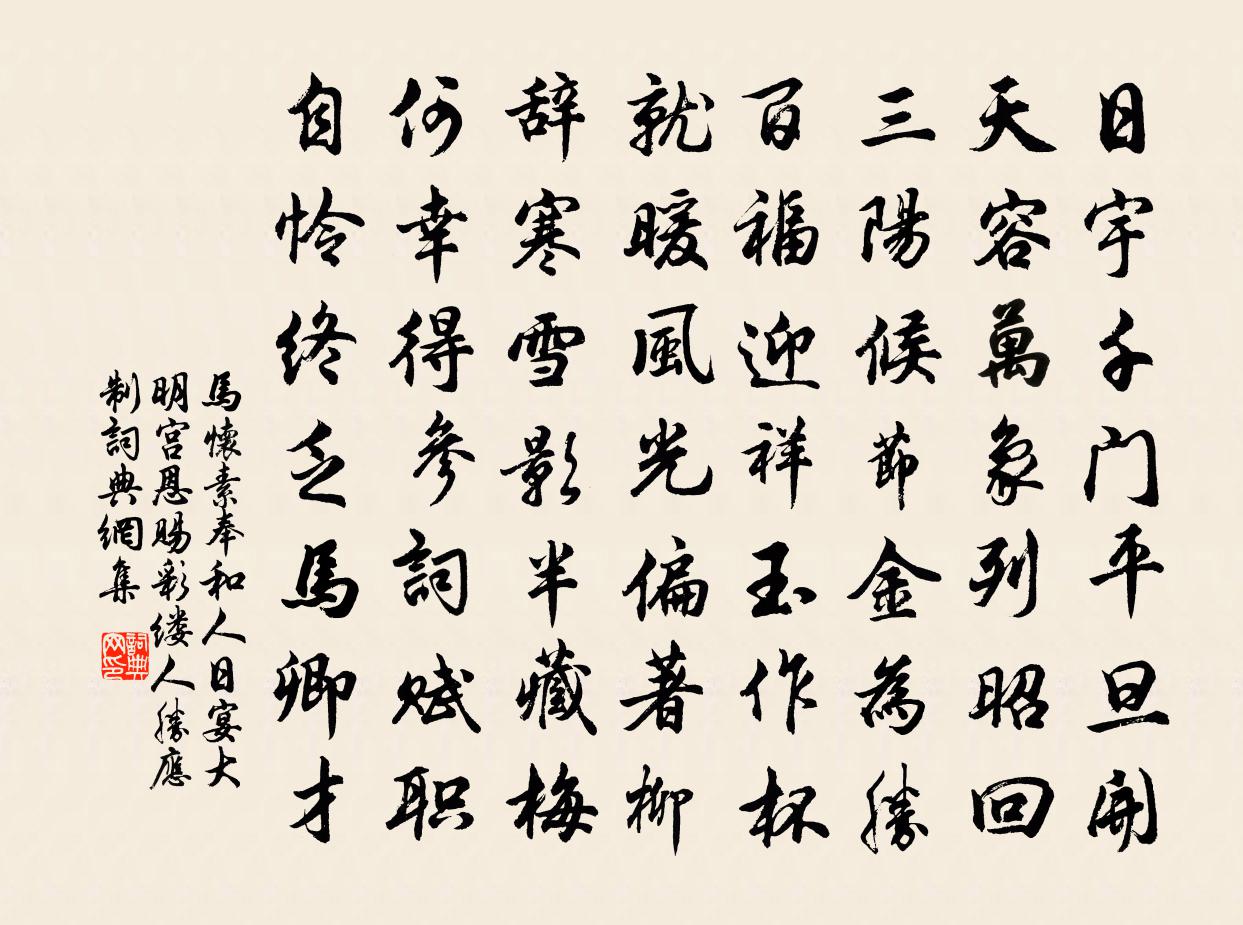 日宇千门平旦開
天容萬象列昭回
三陽候節金為勝
百福迎祥玉作杯
就暖風光偏著柳
辞寒雪影半藏梅
何幸得參詞賦职
自怜终乏馬卿才
馬懷素奉和人日宴大
明宫恩賜彩缕人勝應
制詞典網集
詞典
网印